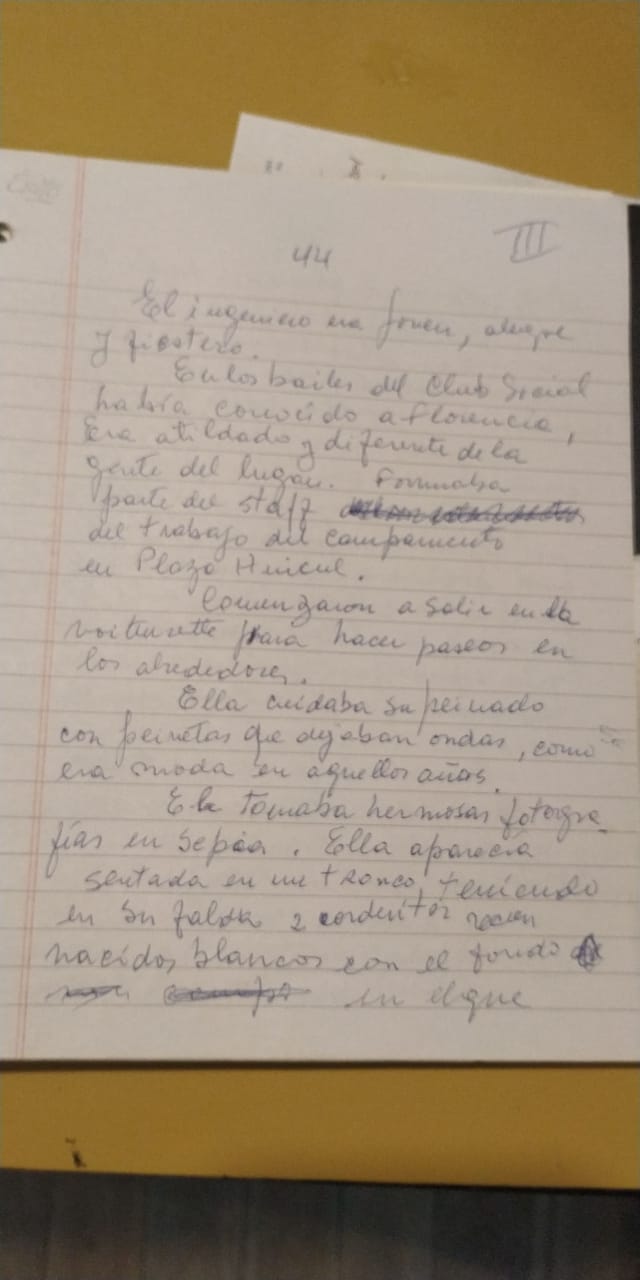 III
44
El ingeniero era joven, alegre
y fiestero.
En los bailes del Club Social
había conocido a Florencia,
Era atildado y diferente de la
gente del lugar. Formaba
parte del staff
del trabajo del campamento
en Plaza Huincul.
Comenzaron a salir en la
voiturette para hacer paseos en
los alrededores.
Ella cuidaba su peinado
con peinetas que dejaban ondas, como
era moda en aquellos años.
El tomaba hermosas fotogra
fías en sepia. Ella aparecía
sentada en un tronco, teniendo
en su falda 2 corderitos recien
nacidos blancos con el fondo
en el que